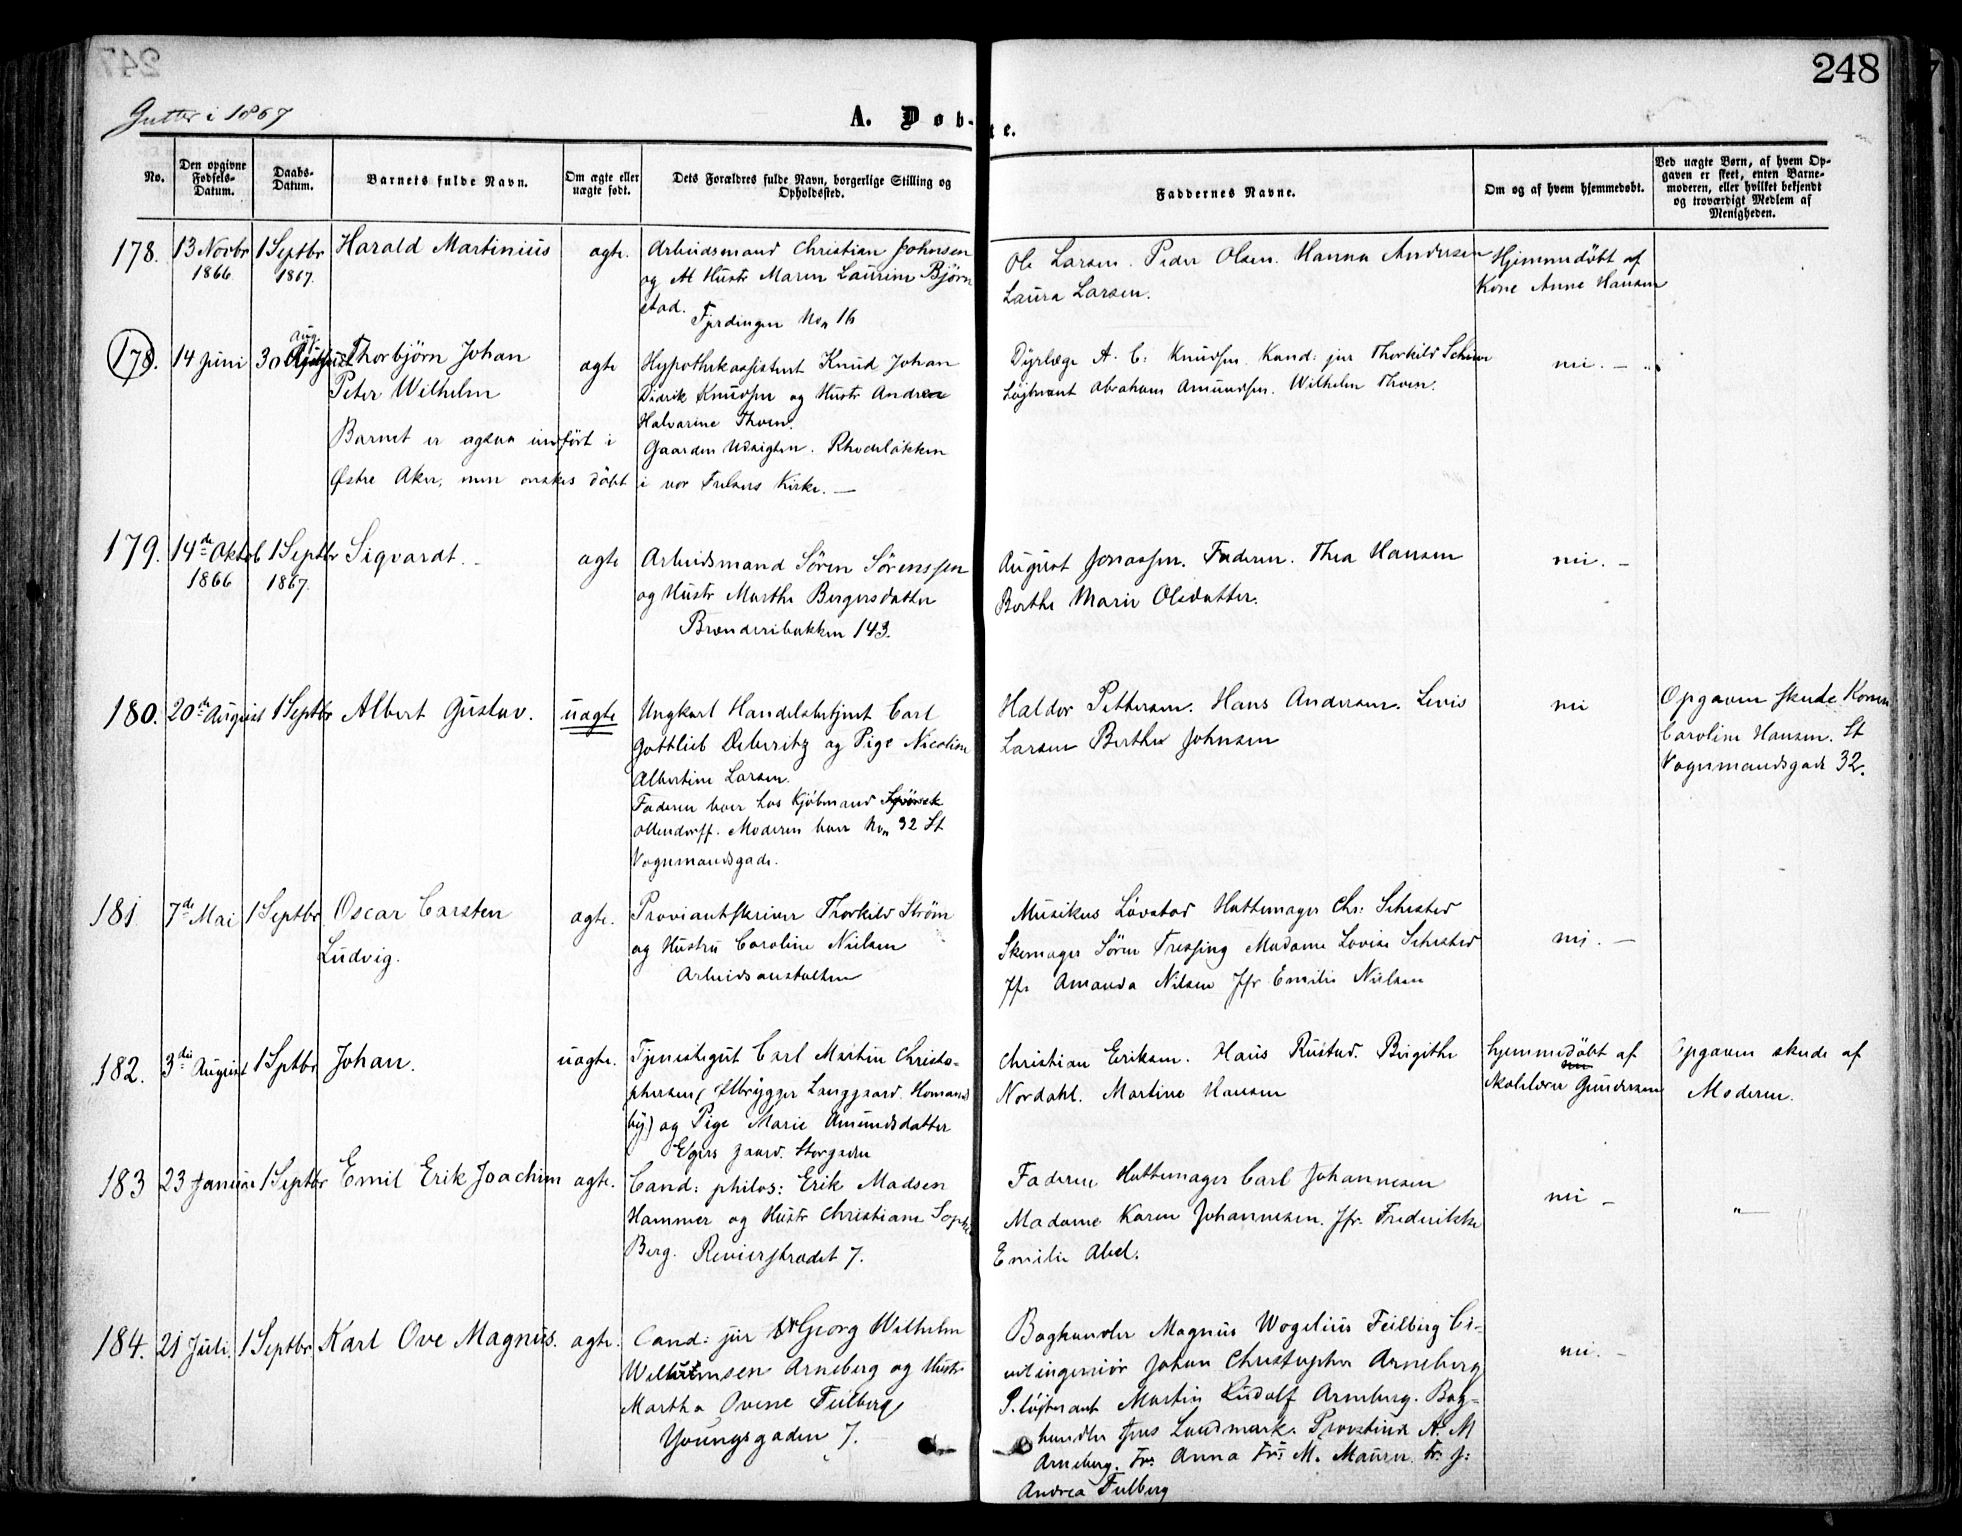 248
Gutter i 1867
A. Døb-te.
No.
Den opgivne Fødsels-Datum.
Daabs-Datum.
Barnets fulde Navn.
Om ægte eller uægte født.
Dets Forældres fulde Navn, borgerlige Stilling og Opholdssted.
Faddernes Navne.
Om og af hvem hjemmedøbt.
Ved uægte Børn, af hvem Opgaven er skeet, enten Barnemoderen, eller hvilket bekjendt og troværdigt Medlem af Menigheden.
178. 13 Novbr 1866 1 Septbr 1867. Harald Martinius ægte.
Arbeidsmand Christian Johnsen
og Hustr Maren Laurine Bjørn
stad.
Fjerdingen No 16
Ole Larsen. Peder Olsen. Hanna Andersen
Laura Larsen.
Hjemmedöbt af
Kone Anne Hansen
178. 14 Juni 30 Aug. Thorbjørn Johan
Peter Wilhelm
ægte
Hypothekassistent Knud Johan
Didrik Knudsen og Hustr Andrea
Halvarine Thoen.
Gaarden Udsigten. Rhodeløkken
Barnet er ogsaa indført i
Østre Aker, men ønskes döbt i vor Frelsers Kirke. —
Dyrlæge A. C: Knudsen. Kand: jur Thorkild
Løjtnant Abraham Amundsen. Wilhelm Thoen.
nei. —
179. 14de Oktob 1866 1 Septbr 1867. Sigvardt. ægte
Arbeidsmand Sören Sörenssen
og Hustr Marthe Bergersdatter
Brænderibakken 143.
August Jonassen. Faderen. Thea Hansen
Berthe Marie Olsdatter.
nei. —
180. 20de August 1 Septbr Albert Gustav. uægte
Ungkarl Handelsbetjent Carl
Gottlieb Deberitz og Pige Nicoline
Albertine Larsen.
Faderen boer hos Kjöbmand
Ollendorff. Moderen boer No 32 St
Vognmandsgade.
Haldor Pettersen. Hans Andersen. Lovis
Larsen Berthe Johnsen
nei
Opgaven skede Konen
Caroline Hansen. St
Vognmandsgade 32.
181 7de Mai 1 Septbr Oscar Carsten
Ludvig.
ægte.
Proviantskriver Thorkild Ström
og Hustru Caroline Nielsen
Arbeidsanstalten
Musikus Lövstad Hattemager Chr: Schested
Skomager Sören Tressing Madame Lovise Schested
Jfr Amanda Nilsen Jfr Emilie Nielsen
nei. —
182. 3die August 1 Septbr Johan. uægte.
Tjenestegut Carl Martin Christo-
phersen (Ølbrygger Langgaard. Homans
by) og Pige Marie Amundsdatter
Egers gaard. Storgaden
Christian Eriksen. Hans Rustad. Birgithe
Nordahl. Martine Hansen
hjemmedöbt af
Skolelærer Gundersen
Opgaven skede af
Moderen.
183 23 Januar 1 Septbr Emil Erik Joachim ægte.
Cand: philos: Erik Madsen
Hammer og Hustr Christiane Sophie
Berg. Revierstrædet 7.
Faderen Hattemager Carl Johannesen
Madame Karen Johannesen. Jfr. Frederikke
Emilie Abel.
nei —
184. 21 Juli. 1 Septbr Karl Ove Magnus. ægte.
Cand: jur Georg Wilhelm
Arneberg og Hustr
Martha Ovene Feilberg
Youngsgaden 7.
Boghandler Magnus Wogelius Feilberg Ci-
vilingeniör Johan Christopher Arneberg
P.löjtenant Martin Ludolf Arneberg. Bog-
handler Jens Landmark. Provstinde A. M
Arneberg. Fr: Anna Fr: M. Maurer. Fr. J:
Andrea Feilberg
nei. —